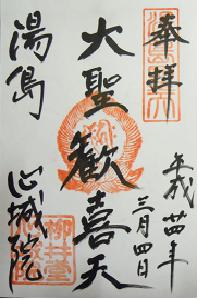 奉拝
平成廿四年
三月四日
大聖歓喜天
湯島
心城院
柳井堂